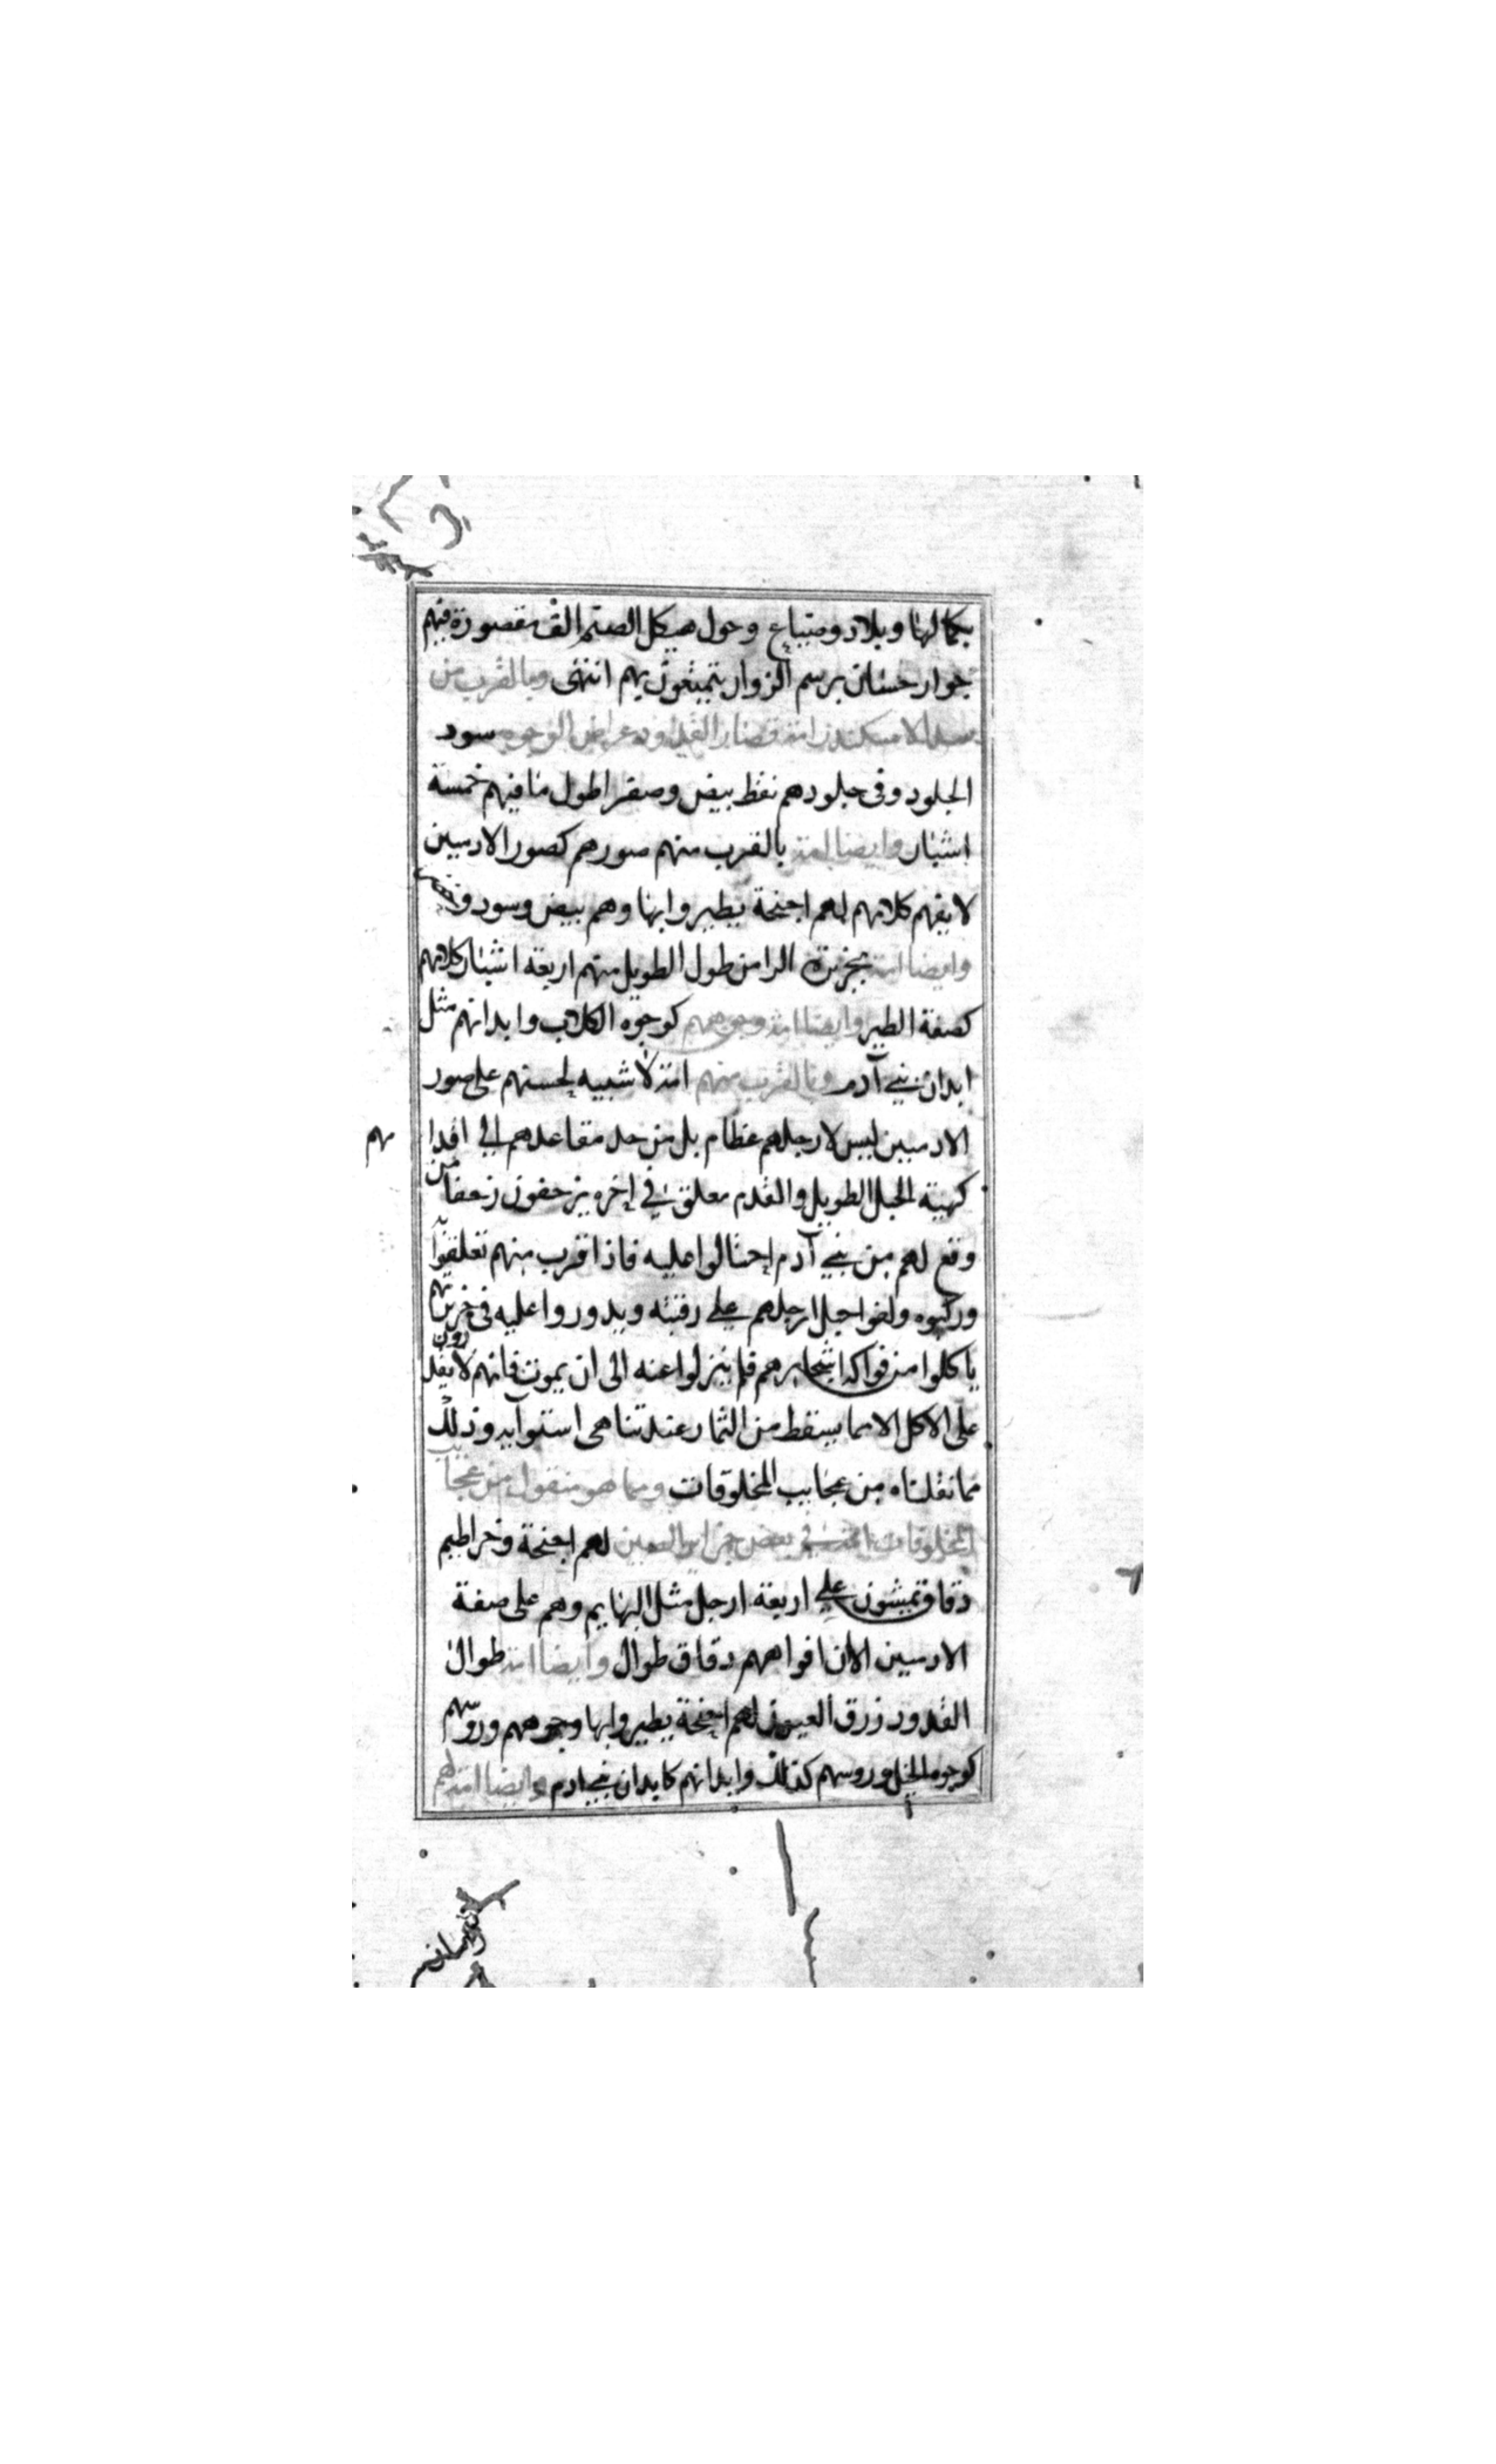 بكمالها وبلاد وضياع وحول هيكل الصنم الف مقصورة فيهم
جوار حسان برسم الزوار يتمتعون بهم انتهى وبالقرب من
سد الاسكندر امة قصار القدود عراض الوجوه سود
الجلود وفى جلودهم نقط بيض وصفر اطول ما فيهم خمسة
اشبار وايضا امة بالقرب منهم صورهم كصور الادميين
لا يفهم كلامهم لهم اجنحة يطيروا بها وهم بيض وسود
وايضا امة بجزيرة الرامن طول الطويل منهم اربعة اشبار كلامهم
كصفة الطير وايضا امة وجوههم كوجوه الكلاب وابدانهم مثل
ابدان بني آدم وبالقرب منهم امة لا شبيه لحسنهم على صور
الادميين ليس لارجلهم عظام بل من حد مقاعدهم الي اقدامهم
كهيئة الحبل الطويل والقدم معلق في اخره يزحفون زحفا من
وقع لهم من بني آدم احتالوا عليه فاذا قرب منهم تعلقوا به
وركبوه ولفوا حبل ارجلهم علي رقبته ويدوروا عليه فى جزيرتهم
ياكلوا من فواكه اشجارهم فلم ينزلوا عنه الى ان يموت فانهم لا يقدرون
على الاكل الا مما يسقط من الثمار عند تناهى استوآيه وذلك
مما نقلناه من عجايب المخلوقات ومما هو منقول من عجايب
المخلوقات امة في بعض جزاير الصين لهم اجنحة وخراطيم
دقاق يمشون علي اربعة ارجل مثل البهايم وهم على صفة
الادميين الا ان افواههم دقاق طوال وايضا امة طوال
القدود زرق العيون لهم اجنحة يطيروا بها وجوههم وروسهم
كوجوه الخيل وروسهم كذلك وابدانهم كابدان بني ادم وايضا امة لهم